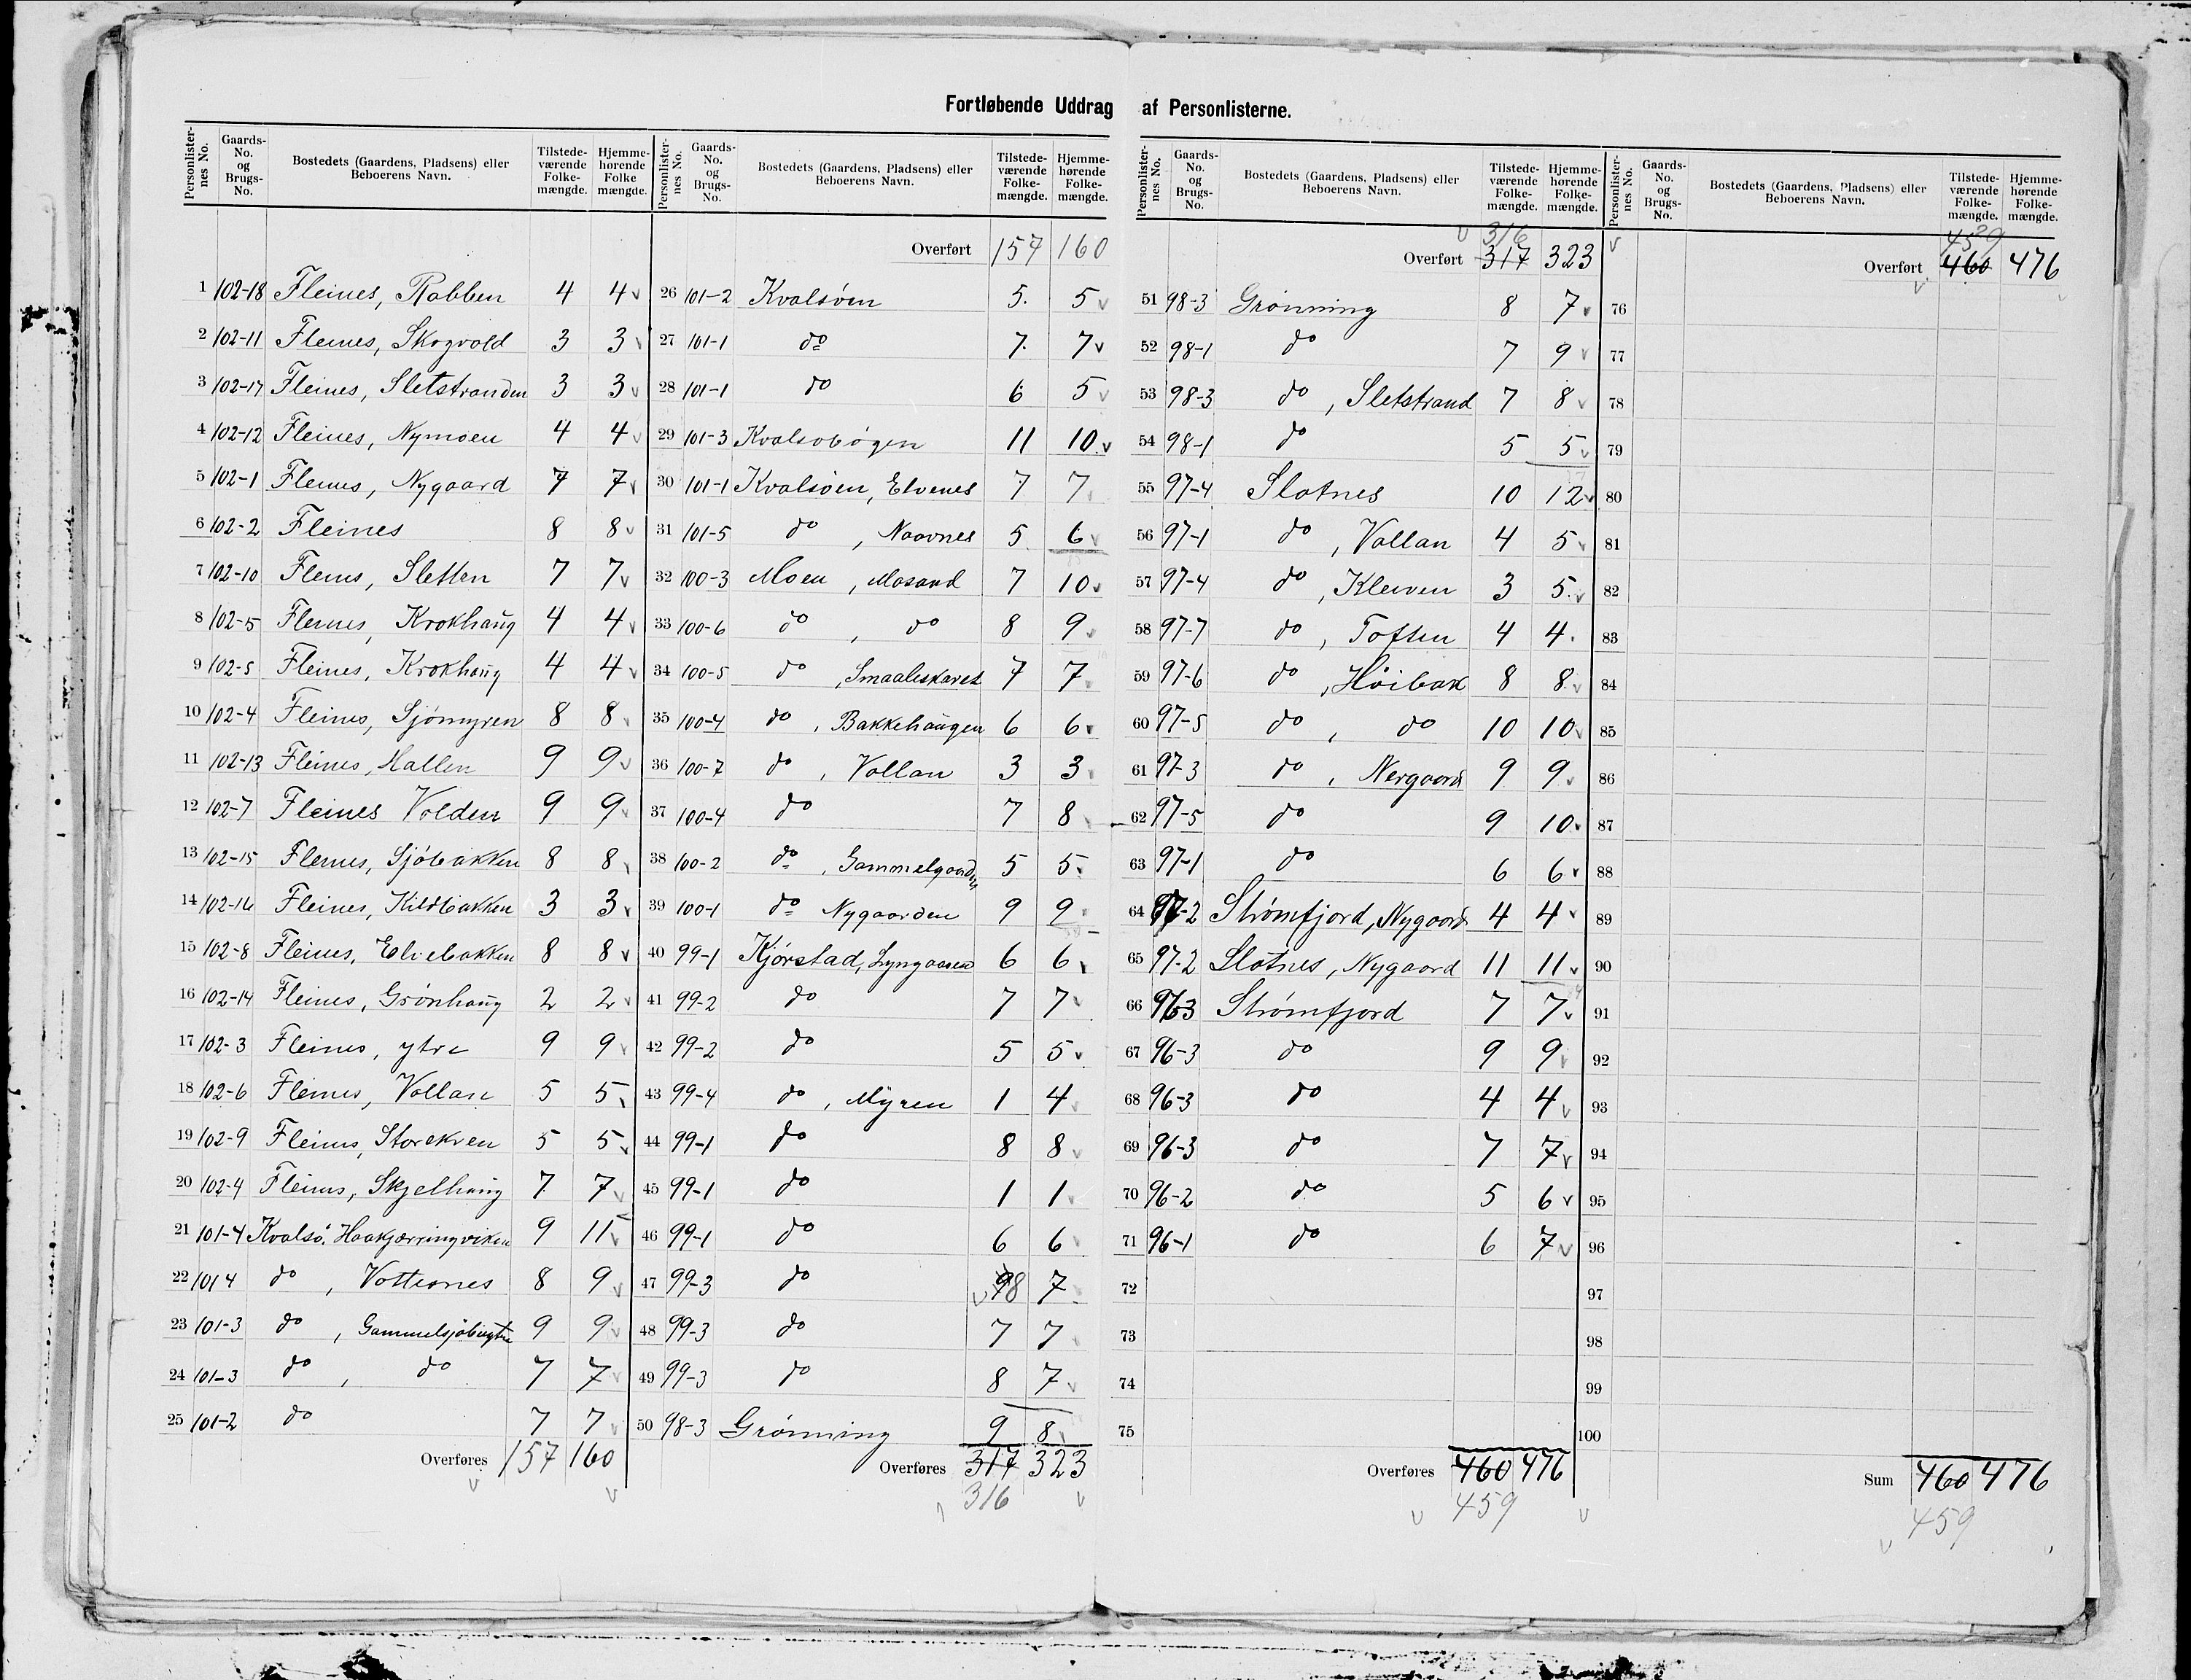 Fortløbende Uddrag af Personlisterne.
Personlisternes No. | Gaards-No. og Brugs-No. | Bostedets (Gaardens, Pladsens) eller Beboerens Navn. | Tilstedeværende Folkemængde. | Hjemmehørende Folke mængde.
1 102-18 Fleines, Rabben 4 4
2 102-11 Fleines, Skogvold 3 3
3 102-17 Fleines, Sletstranden 3 3
4 102-12 Fleines, Nymoen 4 4
5 102-1 Fleines, Nygaard 7 7
6 102-2 Fleines 8 8
7 102-10 Fleines, Sletten 7 7
8 102-5 Fleines, Krokhaug 4 4
9 102-5 Fleines, Krokhaug 4 4
10 102-4 Fleines, Sjømyren 8 8
11 102-13 Fleines, Hallen 9 9
12 102-7 Fleines Volden 9 9
13 102-15 Fleines, Sjøbakken 8 8
14 102-16 Fleines, Kildbakken 3 3
15 102-8 Fleines, Elvebakken 8 8
16 102-14 Fleines, Grønhaug 2 2
17 102-3 Fleines, ytre 9 9
18 102-6 Fleines, Vollan 5 5
19 102-9 Fleines, Storekven 5 5
20 102-4 Fleines, Skjelhaug 7 7
21 101-4 Kvalsø, Haakjærringviken 9 11
22 101 4 do, Vottesnes 8 9
23 101-3 do, Gammelsjøbugten 9 9
24 101-3 do, do 7 7
25 101-2 do 7 7
Overføres 157 160
Personlisternes No. | Gaards-No. og Brugs-No. | Bostedets (Gaardens, Pladsens) eller Beboerens Navn. | Tilstedeværende Folkemængde. | Hjemmehørende Folkemængde.
Overført 157 160
26 101-2 Kvalsøen 5. 5
27 101-1 do 7. 7
28 101-1 do 6 5
29 101-3 Kvalsøbøgen 11 10
30 101-1 Kvalsøen, Elvenes 7 7
31 101-5 do, Naavnes 5 6
32 100-3 Moen, Mosand 7 10
33 100-6 do, do 8 9
34 100-5 do, Smaaleskaret 7 7
35 100-4 do, Bakkehaugen 6 6
36 100-7 do, Vollan 3 3
37 100-4 do 7 8
38 100-2 do, Gammelgaarden 5 5
39 100-1 do Nygaarden 9 9
40 99-1 Kjørstad, Lyngaasen 6 6
41 99-2 do 7 7
42 99-2 do 5 5
43 99-4 do, Myren 1 4
44 99-1 do 8 8
45 99-1 do 1 1
46 99-1 do 6 6
47 99-3 do 8 7
48 99-3 do 7 7
49 99-3 do 8 7
50 98-3 Grønning 9 8
Overføres 317 323
316
Personlisternes No. | Gaards-No. og Brugs-No. | Bostedets (Gaardens, Pladsens) eller Beboerens Navn. | Tilstedeværende Folkemængde. | Hjemmehørende Folkemængde.
316
Overført 317 323
51 98-3 Grønning 8 7
52 98-1 do 7 9
53 98-3 do, Sletstrand 7 8
54 98-1 do 5 5
55 97-4 Slotnes 10 12
56 97-1 do, Vollan 4 5
57 97-4 do, Kleiven 3 5
58 97-7 do, Toften 4 4
59 97-6 do, Høibak 8 8
60 97-5 do, do 10 10
61 97-3 do, Nergaard 9 9
62 97-5 do 9 10
63 97-1 do 6 6
64 97-2 Strømfjord, Nygaard 4 4
65 97-2 Slotnes, Nygaard 11 11
66 96-3 Strømfjord 7 7
67 96-3 do 9 9
68 96-3 do 4 4
69 96-3 do 7 7
70 96-2 do 5 6
71 96-1 do 6 7
72
73
74
75
Overføres 460 476
459
Personlisternes No. | Gaards-No. og Brugs-No. | Bostedets (Gaardens, Pladsens) eller Beboerens Navn. | Tilstedeværende Folkemængde. | Hjemmehørende Folkemængde.
459
Overført 460 476
76
77
78
79
80
81
82
83
84
85
86
87
88
89
90
91
92
93
94
95
96
97
98
99
100
Sum 460 476
459